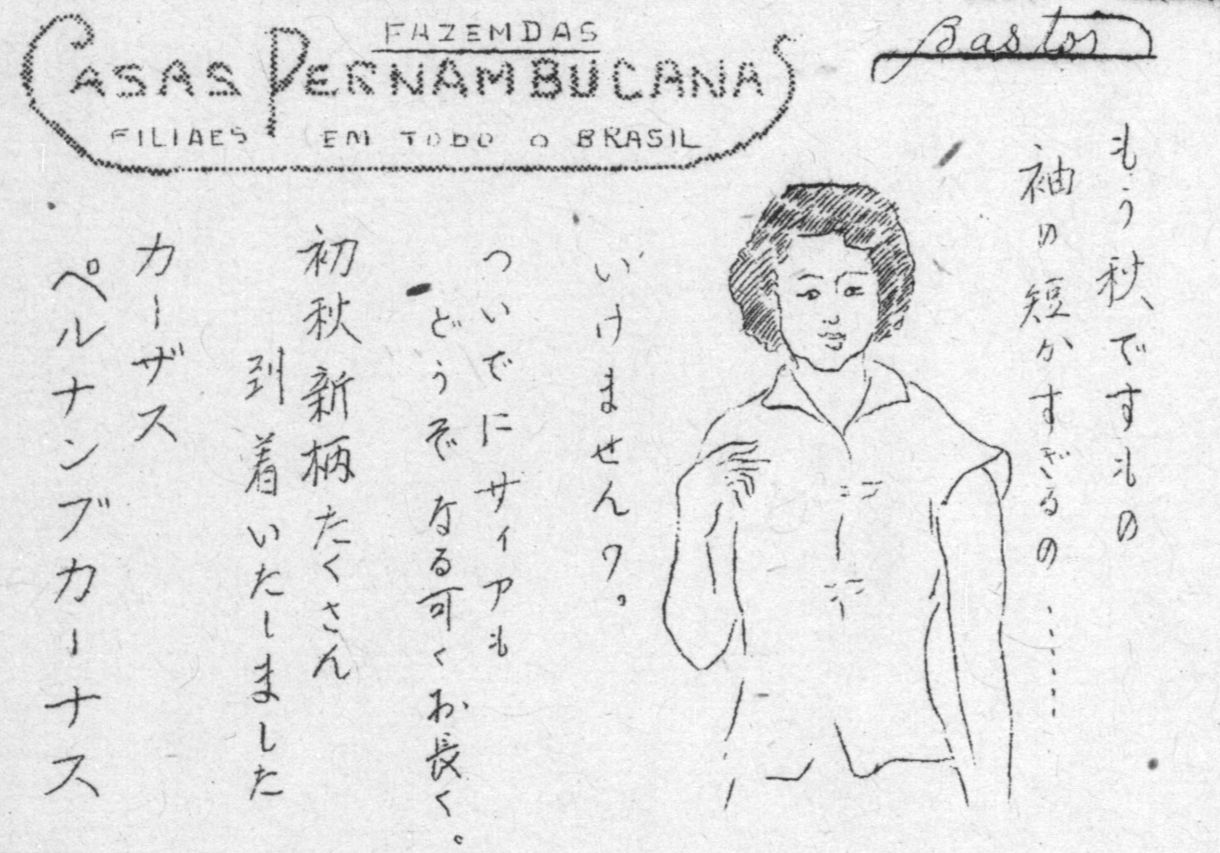 FAZEMDAS
CASAS PERNAMBUCANAS
FILIAES EM TODO O BRASIL
Bastos
もう秋ですもの
袖の短かすぎるの……
いけませんワ。
ついでにサイアも
どうぞなる可くお長く。
初秋新柄たくさん
到着いたしました
カーザス
ペルナンブカーナス